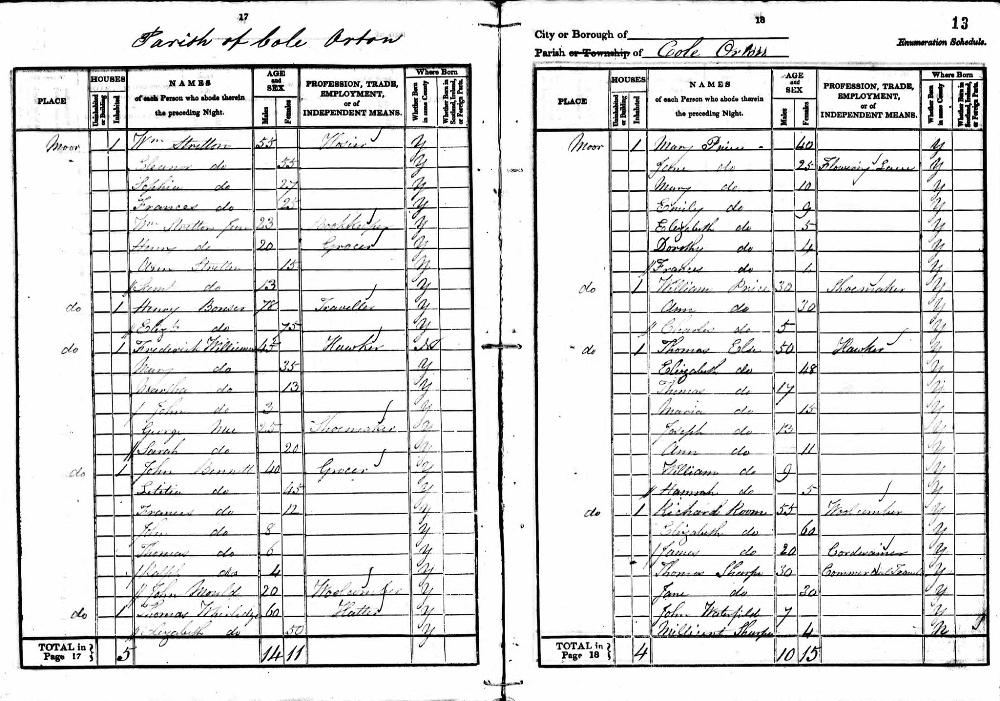 17
Parish of Cole Orton
PLACE
HOUSES
Uninhabited or Building
Inhabited
NAMES
of each Person who abode therein
the preceding Night.
AGE
and
SEX
Males
Females
PROFESSION, TRADE,
EMPLOYMENT,
or of
INDEPENDENT MEANS.
Where Born
Whether Born in same County
Whether Born in Scotland, Ireland, or Foreign Parts.
Moor 1 Wm Stretton 55 Hosier Y
Eleanor do 55 Y
Sophia do 27 Y
Frances do 25 Y
Wm Stretton Jun 23 Bookkeeper Y
Henry do 20 Grocer Y
Ann Stretton 15 Y
do 13 Y
do 1 Henry Bowser 78 Traveller Y
Elizth do 75 Y
do 1 Frederick Williamson Hawker
Mary do 35 Y
Martha do 13 Y
John do 3 Y
George 25 Shoemaker Y
Sarah do 20 Y
do 1 John Bennett 40 Grocer Y
Letitia do 45 Y
Frances do 12 Y
do 8 Y
Thomas do 6 Y
Ralph do 4 Y
John Mould 20 Woolcomber Y
do 1 Thomas 60 Hatter Y
Elizabeth do 50 Y
TOTAL in
Page 17
5 14 11
18
13
City or Borough of
Parish or Township of Cole Orton
Enumeration Schedule.
PLACE
HOUSES
Uninhabited or Building
Inhabited
NAMES
of each Person who abode therein
the preceding Night.
AGE
and
SEX
Males
Females
PROFESSION, TRADE,
EMPLOYMENT,
or of
INDEPENDENT MEANS.
Where Born
Whether Born in same County
Whether Born in Scotland, Ireland, or Foreign Parts.
Moor 1 Mary Price 40 Y
Jane do 25 Flowering Lace Y
Mary do 10 Y
Emily do 9 Y
Elizabeth do 5 Y
Dorothy do 4 Y
Frances do 1 Y
do 1 William Price 30 Shoemaker Y
Ann do 30 Y
Charles do 5 Y
do 1 Thomas Else 50 Hawker Y
Elizabeth do 48 Y
Thomas do 17 Y
Maria do 15 Y
Joseph do 13 Y
Ann do 11 Y
William do 9 Y
Hannah do 5 Y
do 1 Richard Room 55 Woolcomber Y
Elizabeth do 60 Y
James do 20 Cordwainer Y
Thomas Sharpe 30 Commercial Travel Y
Jane do 30 Y
John Waterfield 7 Y
Millicent Sharpe 4 N
TOTAL in
Page 18
4 10 15